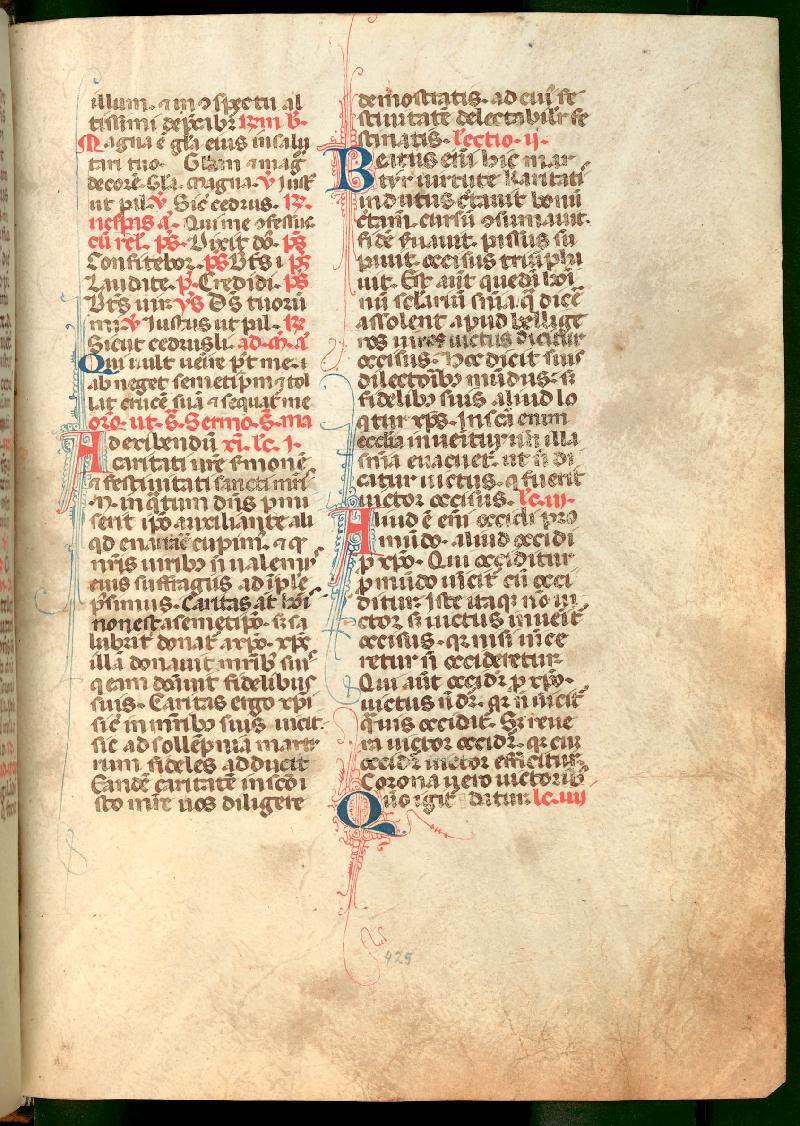 illum. ⁊ in ɔspectu al
tissimi dep̄cibꝰ
Magna ē gl̄a eius in salu
tari tuo. Gl̄am ⁊ mag̃
decorē. Gl̄a. magna. ℣ Just̄
ut pil. ℣. Sic cedrus. ℞.
uesp̄is a᷑. Qui me ɔfessus
cū rel̄. p̄s. Dixit dō. p̄s
Confitebor. p̄s Bt̄s i p̄s
Laudite. p̄. Credidi. p̄s
Bt̄s uir ℣s Ds̄ tuorū
mi℣ Justus ut pil. ℞
Sicut cedrusli. ad. m̄. a᷑
Qui uult uenire p̄t me.
ab neget semetip̄m ⁊ tol
lat crucē suā ⁊ sequat̄ me
orō. ut. s̄. Sermo. S. ma
Ad exibendū xi. lc̄. i.
caritati ur̄e sermonē
⁊ festiuitati sancti mr̄i
.N. in q̄tum dn̄s p̄mi
serit ip̄o auxiliante ali
qd enarrare cupim̄. ⁊ q
nr̄is uiribꝰ n̄ ualemꝰ
eius suffragiis adīple
p̄simus. Caritas at̄ hōi
non est a semetip̄o. sꝫ sa
lubrit̄ donat̄ a xp̄o. xp̄s
illā donauit mr̄ibꝰ suis
qeam donuit fidelibus
suis. Caritas ergo xp̄i
sic̄ in mr̄ibꝰ suis uicit.
sic ad sollēpnia marti
rum fideles adducit
Eandē caritatē in sc̄o i
sto mr̄e uos diligere
demōstratis. ad cuiꝰ fe
stiuitatē delectabilit̄ fe
stinatis. lectio. ii.
Beatus eni hic mar
tyr uirtute karitati
indutus c̄tauit bonū
c̄tam. cursū ɔsumauit.
fidē suauit. pissus su
puit. occisus triūphi
uit. Est aut̄ quedā hōi
nū sclarium snīa. q̄ dicē
assolent apud bellige
ros uires uictus dicitur
occisus. Hoc dicit suis
dilectoribꝰ mūdus: sꝫ
fidelibꝰ suis aliud lo
qtur xp̄s. In sc̄a enim
ecclīa inuenitur un̄ illa
snīa euacuet̄. ut n̄ di
catur uictus. q̄ fuerit
uictor occisus. lc̄. iii.
Aliud ē eni occidi pro
mūdo. aliud occidi
p xp̄o. Qui occiditur
p mūdo uicit̄ cū occi
ditur. Iste itaqꝫ nō ui
ctor sꝫ uictus inuenit̄
occisus. qꝛ nisi uice
retur n̄ occideretur
Qui aut̄ occidꝛ p xp̄o.
uictus n̄ dꝛ. qꝛ n̄ uicit
q̄uis occidit̄. Sꝫ reue
ra uictor occidꝛ. qꝛ cū
occidꝛ uictor efficitur.
Corona uero uictoribꝰ
Quo igit̄ datur lc̄. iiii
425